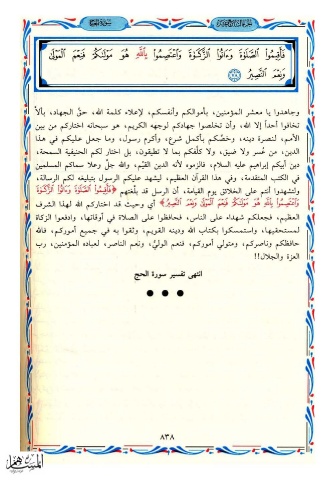 فَأَقِيمُوا۟ ٱلصَّلَوٰةَ وَءَاتُوا۟ ٱلزَّكَوٰةَ وَٱعْتَصِمُوا۟ بِٱللَّهِ هُوَ مَوْلَىٰكُمْ فَنِعْمَ ٱلْمَوْلَىٰ
وَنِعْمَ ٱلنَّصِيرُ ﴿٧٨﴾
وجاهدوا يا معشر المؤمنين، بأموالكم وأنفسكم، لإعلاء كلمة الله، حقَّ الجهاد، بألاَّ
تخافوا أحداً إلا الله، وأن تخلصوا جهادكم لوجهه الكريم، هو سبحانه اختاركم من بين
الأمم، لنصرة دينه، وخصَّكم بأكمل شرع، وأكرم رسول، وما جعل عليكم في هذا
الدين، من عُسر ولا ضيق، ولا كلَّفكم بما لا تطيقون، بل اختار لكم الحنيفية السمحة،
دين أبيكم إبراهيم عليه السلام، فالزموه لأنه الدين القيِّم، والله جلَّ وعلا سماكم المسلمين
في الكتب المتقدمة، وفي هذا القرآن العظيم، ليشهد عليكم الرسول بتبليغه لكم الرسالة،
ولتشهدوا أنتم على الخلائق يوم القيامة، أن الرسل قد بلَّغتهم ﴿فَأَقِيمُوا۟ ٱلصَّلَوٰةَ وَءَاتُوا۟ ٱلزَّكَوٰةَ
وَٱعْتَصِمُوا۟ بِٱللَّهِ هُوَ مَوْلَىٰكُمْ فَنِعْمَ ٱلْمَوْلَىٰ وَنِعْمَ ٱلنَّصِيرُ﴾ أي وحيث قد اختاركم الله لهذا الشرف
العظيم، فجعلكم شهداء على الناس، فحافظوا على الصلاة في أوقاتها، وادفعوا الزكاة
لمستحقيها، واستمسكوا بكتاب الله ودينه القويم، وثقوا به في جميع أموركم، فالله
حافظكم وناصركم، ومتولي أموركم، فنعم الوليُّ، ونعم الناصر، لعباده المؤمنين، رب
العزة والجلال!!
انتهى تفسير سورة الحج
٨٣٨